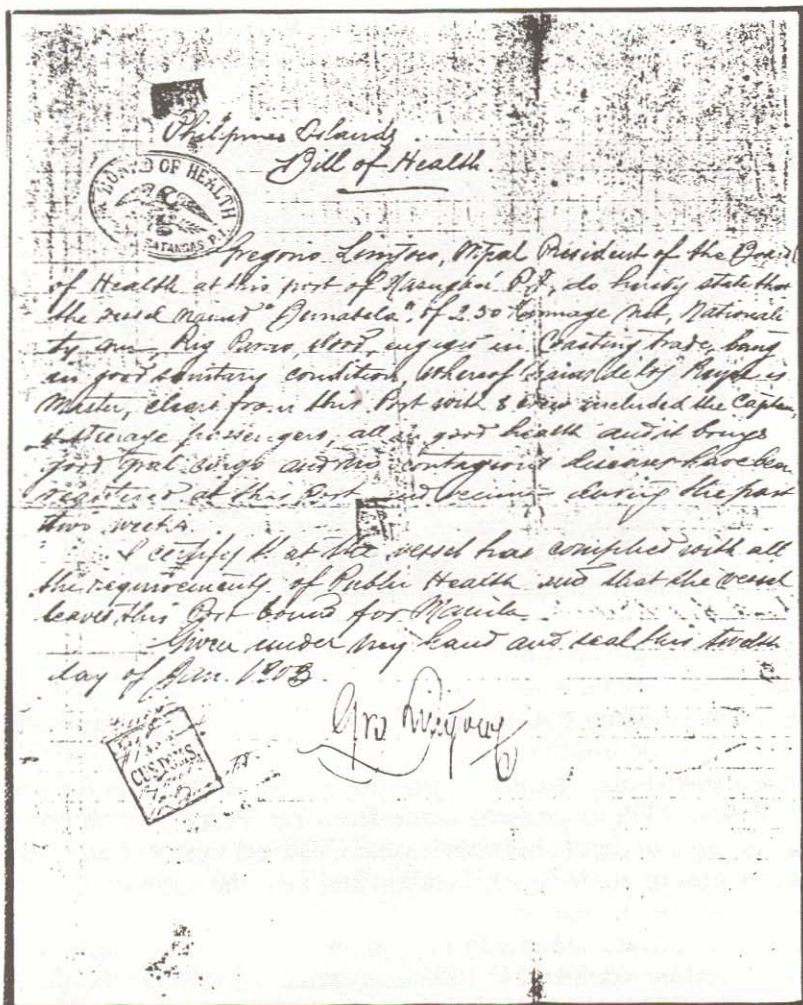 Philipines Islands.
Bill of Health.
BOARD OF HEALTH
BATANGAS P.I.
Gregorio, Mpal President of the Board
of Health at this port of Nasugbú P.I, do hereby state that
the vessel named of 2.50 tonnage net, Nationali
ty, Rig, engaged in Coasting trade, being
in good sanitary condition, whereof de los Reyes is
Master, clears from this Port with 8 crew included the Captain,
steerage passengers, all in good health and it brings
good cargo and no contagious diseases have been
registered at this Port and during the past
two weeks.
I certify that the vessel has complied with all
the requirements of Public Health and that the vessel
leaves this Port bound for Manila.
Given under my hand and seal this twelth
day of Jan. 1903.
CUSTOMS